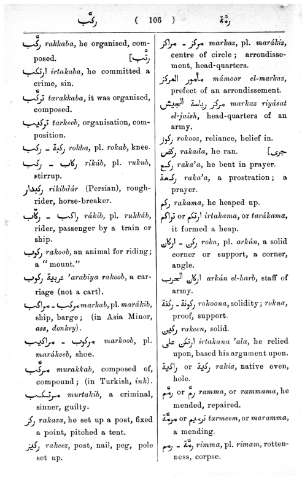 ركب ( 106 ) رمة
ركّب rakkaba, he organised, com-
posed. [رتّب
ارتكب irtakaba, he committed a
crime, sin.
تركّب tarakkaba, it was organised,
composed.
تركيب tarkeeb, organisation, com-
position.
ركبة - ركب rokba, pl. rokab, knee.
ركاب - ركب rikâb, pl. rukub,
stirrup.
ركبدار rikibdâr (Persian), rough-
rider, horse-breaker.
راكب - ركّاب râkib, pl. rukkâb,
rider, passenger by a train or
ship.
ركوب rakoob, an animal for riding;
a "mount."
عربية ركوب 'arabiya rakoob, a car-
riage (not a cart).
مركب - مراكب markab, pl. marâkib,
ship, barge; (in Asia Minor,
ass, donkey).
مركوب - مراكيب markoob, pl.
marâkeeb, shoe.
مركّب murakkab, composed of,
compound; (in Turkish, ink).
مرتكب murtakib, a criminal,
sinner, guilty.
ركز rakaza, he set up a post, fixed
a point, pitched a tent.
ركيز rakeez, post, nail, peg, pole
set up.
مركز - مراكز markaz, pl. marâkiz,
centre of circle; arrondisse-
ment, head-quarters.
مأمور المركز mâmoor el-markaz,
prefect of an arrondissement.
مركز رياسة الجيش markaz riyâsat
el-jaish, head-quarters of an
army.
ركوز rokooz, reliance, belief in.
ركض rakada, he ran. [جرى
ركع raka'a, he bent in prayer.
ركعة raka'a, a prostration; a
prayer.
ركم rakama, he heaped up.
ارتكم or تراكم irtakama, or tarâkama,
it formed a heap.
ركن - اركان rokn, pl. arkân, a solid
corner or support, a corner,
angle.
اركان الحرب arkân el-harb, staff of
army.
ركونة - ركنة rokoona, solidity; rokna,
proof, support.
ركين rakeen, solid.
ارتكن على irtakana 'ala, he relied
upon, based his argument upon.
راكية or ركية rakia, native oven,
hole.
رمّ or رمّم ramma, or rammama, he
mended, repaired.
ترميم or مرمّة tarmeem, or maramma,
a mending.
رمّة - رمم rimma, pl. rimam, rotten-
ness, corpse.